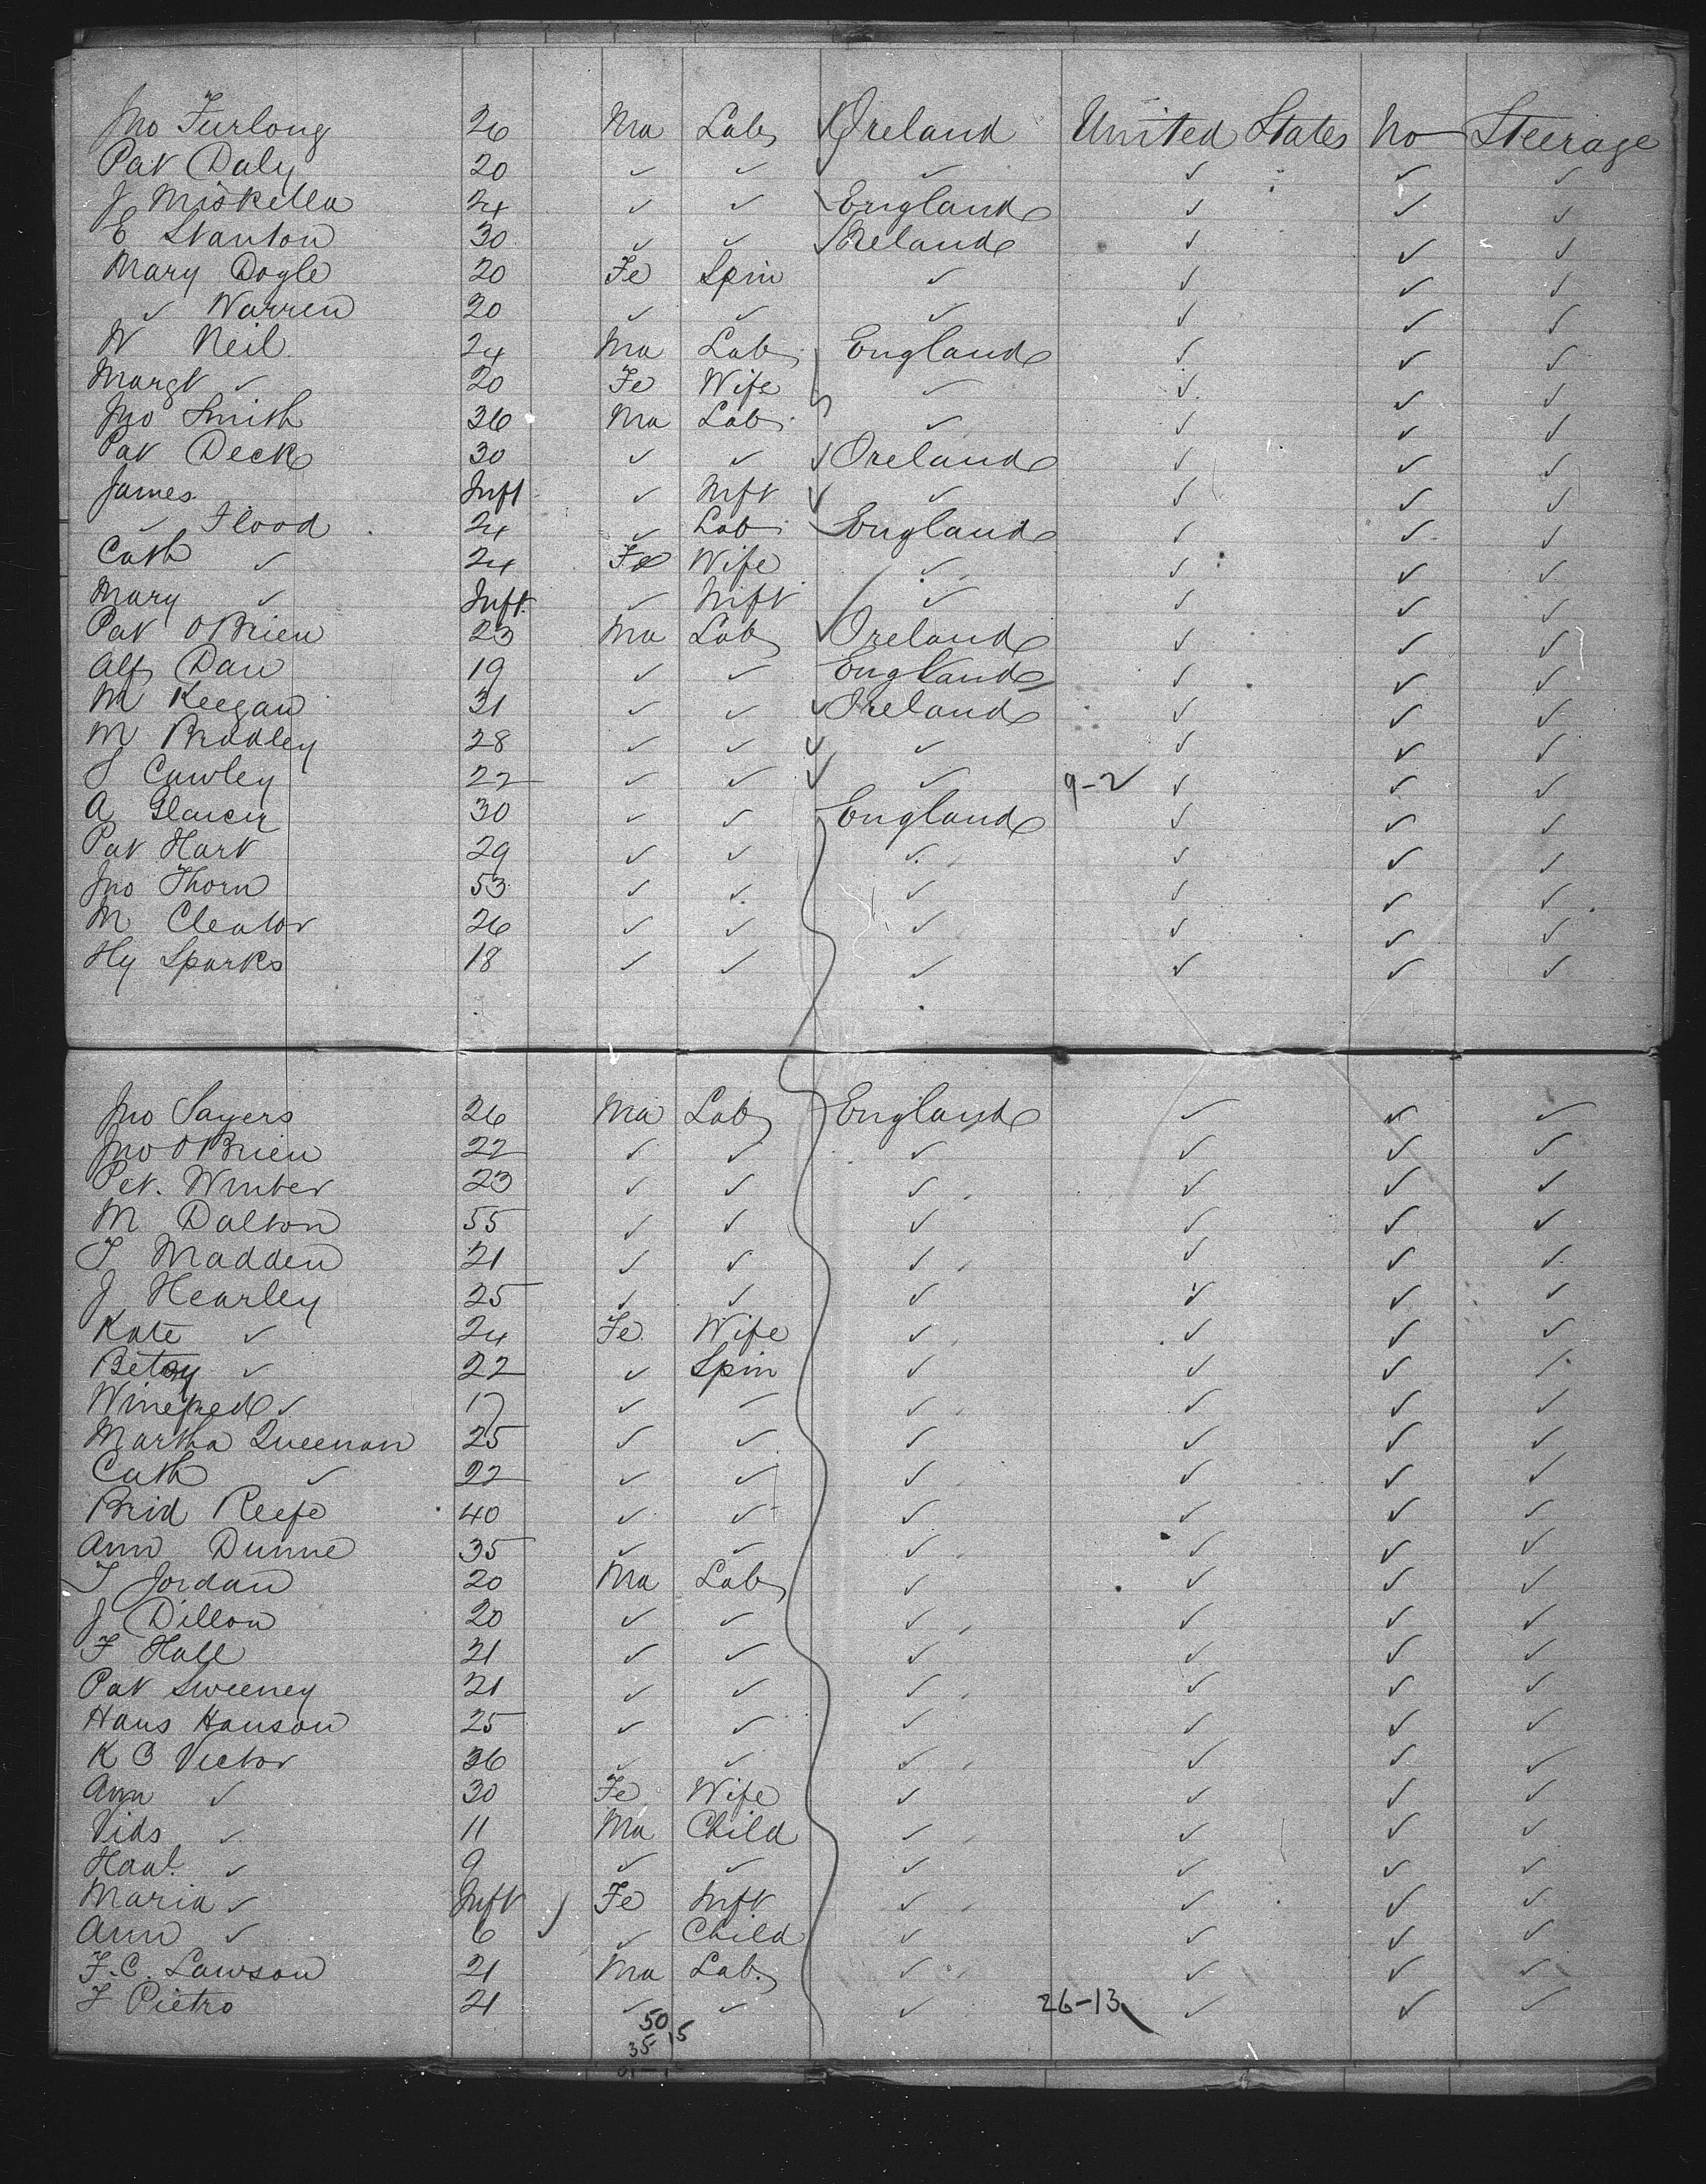 Jno Furlong 26 Ma Lab Ireland United States No Steerage
Pat Daly 20 ✓ ✓ ✓ ✓ ✓ ✓
J Miskella 24 ✓ ✓ England ✓ ✓ ✓
E Stanton 30 ✓ ✓ Ireland ✓ ✓ ✓
Mary Dogle 20 Fe Spin ✓ ✓ ✓ ✓
✓ Warren 20 ✓ ✓ ✓ ✓ ✓ ✓
W Neil 24 Ma Lab England ✓ ✓ ✓
Margt ✓ 20 Fe Wife ✓ ✓ ✓ ✓
Jno Smith 36 Ma Lab ✓ ✓ ✓ ✓
Pat Deck 30 ✓ ✓ Ireland ✓ ✓ ✓
James Inft ✓ Inft ✓ ✓ ✓ ✓
✓ Flood 24 ✓ Lab England ✓ ✓ ✓
Cath ✓ 24 Fe Wife ✓ ✓ ✓ ✓
Mary ✓ Inft ✓ Inft ✓ ✓ ✓ ✓
Pat OBrien 23 Ma Lab Ireland ✓ ✓ ✓
Alf Daw 19 ✓ ✓ England ✓ ✓ ✓
M Keegan 31 ✓ ✓ Ireland ✓ ✓ ✓
M Bradley 28 ✓ ✓ ✓ ✓ ✓ ✓
Cawley 22 ✓ ✓ ✓ 9-2 ✓ ✓ ✓
A 30 ✓ ✓ England ✓ ✓ ✓
Pat Hart 29 ✓ ✓ ✓ ✓ ✓ ✓
Jno Thorn 53 ✓ ✓ ✓ ✓ ✓ ✓
M Cleator 26 ✓ ✓ ✓ ✓ ✓ ✓
Hy Sparks 18 ✓ ✓ ✓ ✓ ✓ ✓
Jno Sayers 26 Ma Lab England ✓ ✓ ✓
Jno OBrien 22 ✓ ✓ ✓ ✓ ✓ ✓
Pet. Winter 23 ✓ ✓ ✓ ✓ ✓ ✓
M Dalton 55 ✓ ✓ ✓ ✓ ✓ ✓
T Madden 21 ✓ ✓ ✓ ✓ ✓ ✓
J Hearley 25 ✓ ✓ ✓ ✓ ✓ ✓
Kate ✓ 24 Fe Wife ✓ ✓ ✓ ✓
Betsy ✓ 22 ✓ Spin ✓ ✓ ✓ ✓
Winefred ✓ 17 ✓ ✓ ✓ ✓ ✓ ✓
Martha Queenan 25 ✓ ✓ ✓ ✓ ✓ ✓
Cath ✓ 22 ✓ ✓ ✓ ✓ ✓ ✓
Brid Keefe 40 ✓ ✓ ✓ ✓ ✓ ✓
Ann Dunne 35 ✓ ✓ ✓ ✓ ✓ ✓
T Jordan 20 Ma Lab ✓ ✓ ✓ ✓
J Dillon 20 ✓ ✓ ✓ ✓ ✓ ✓
F Hall 21 ✓ ✓ ✓ ✓ ✓ ✓
Pat Sweeney 21 ✓ ✓ ✓ ✓ ✓ ✓
Hans Hanson 25 ✓ ✓ ✓ ✓ ✓ ✓
K C Victor 36 ✓ ✓ ✓ ✓ ✓ ✓
Ann ✓ 30 Fe Wife ✓ ✓ ✓ ✓
Vids ✓ 11 Ma Child ✓ ✓ ✓ ✓
✓ 9 ✓ ✓ ✓ ✓ ✓ ✓
Maria ✓ Inft Fe Inft ✓ ✓ ✓ ✓
Ann ✓ 6 ✓ Child ✓ ✓ ✓ ✓
F.C. Lawson 21 Ma Lab ✓ ✓ ✓ ✓
Pietro 21 ✓ ✓ ✓ 26-13 ✓ ✓ ✓
50
35 15